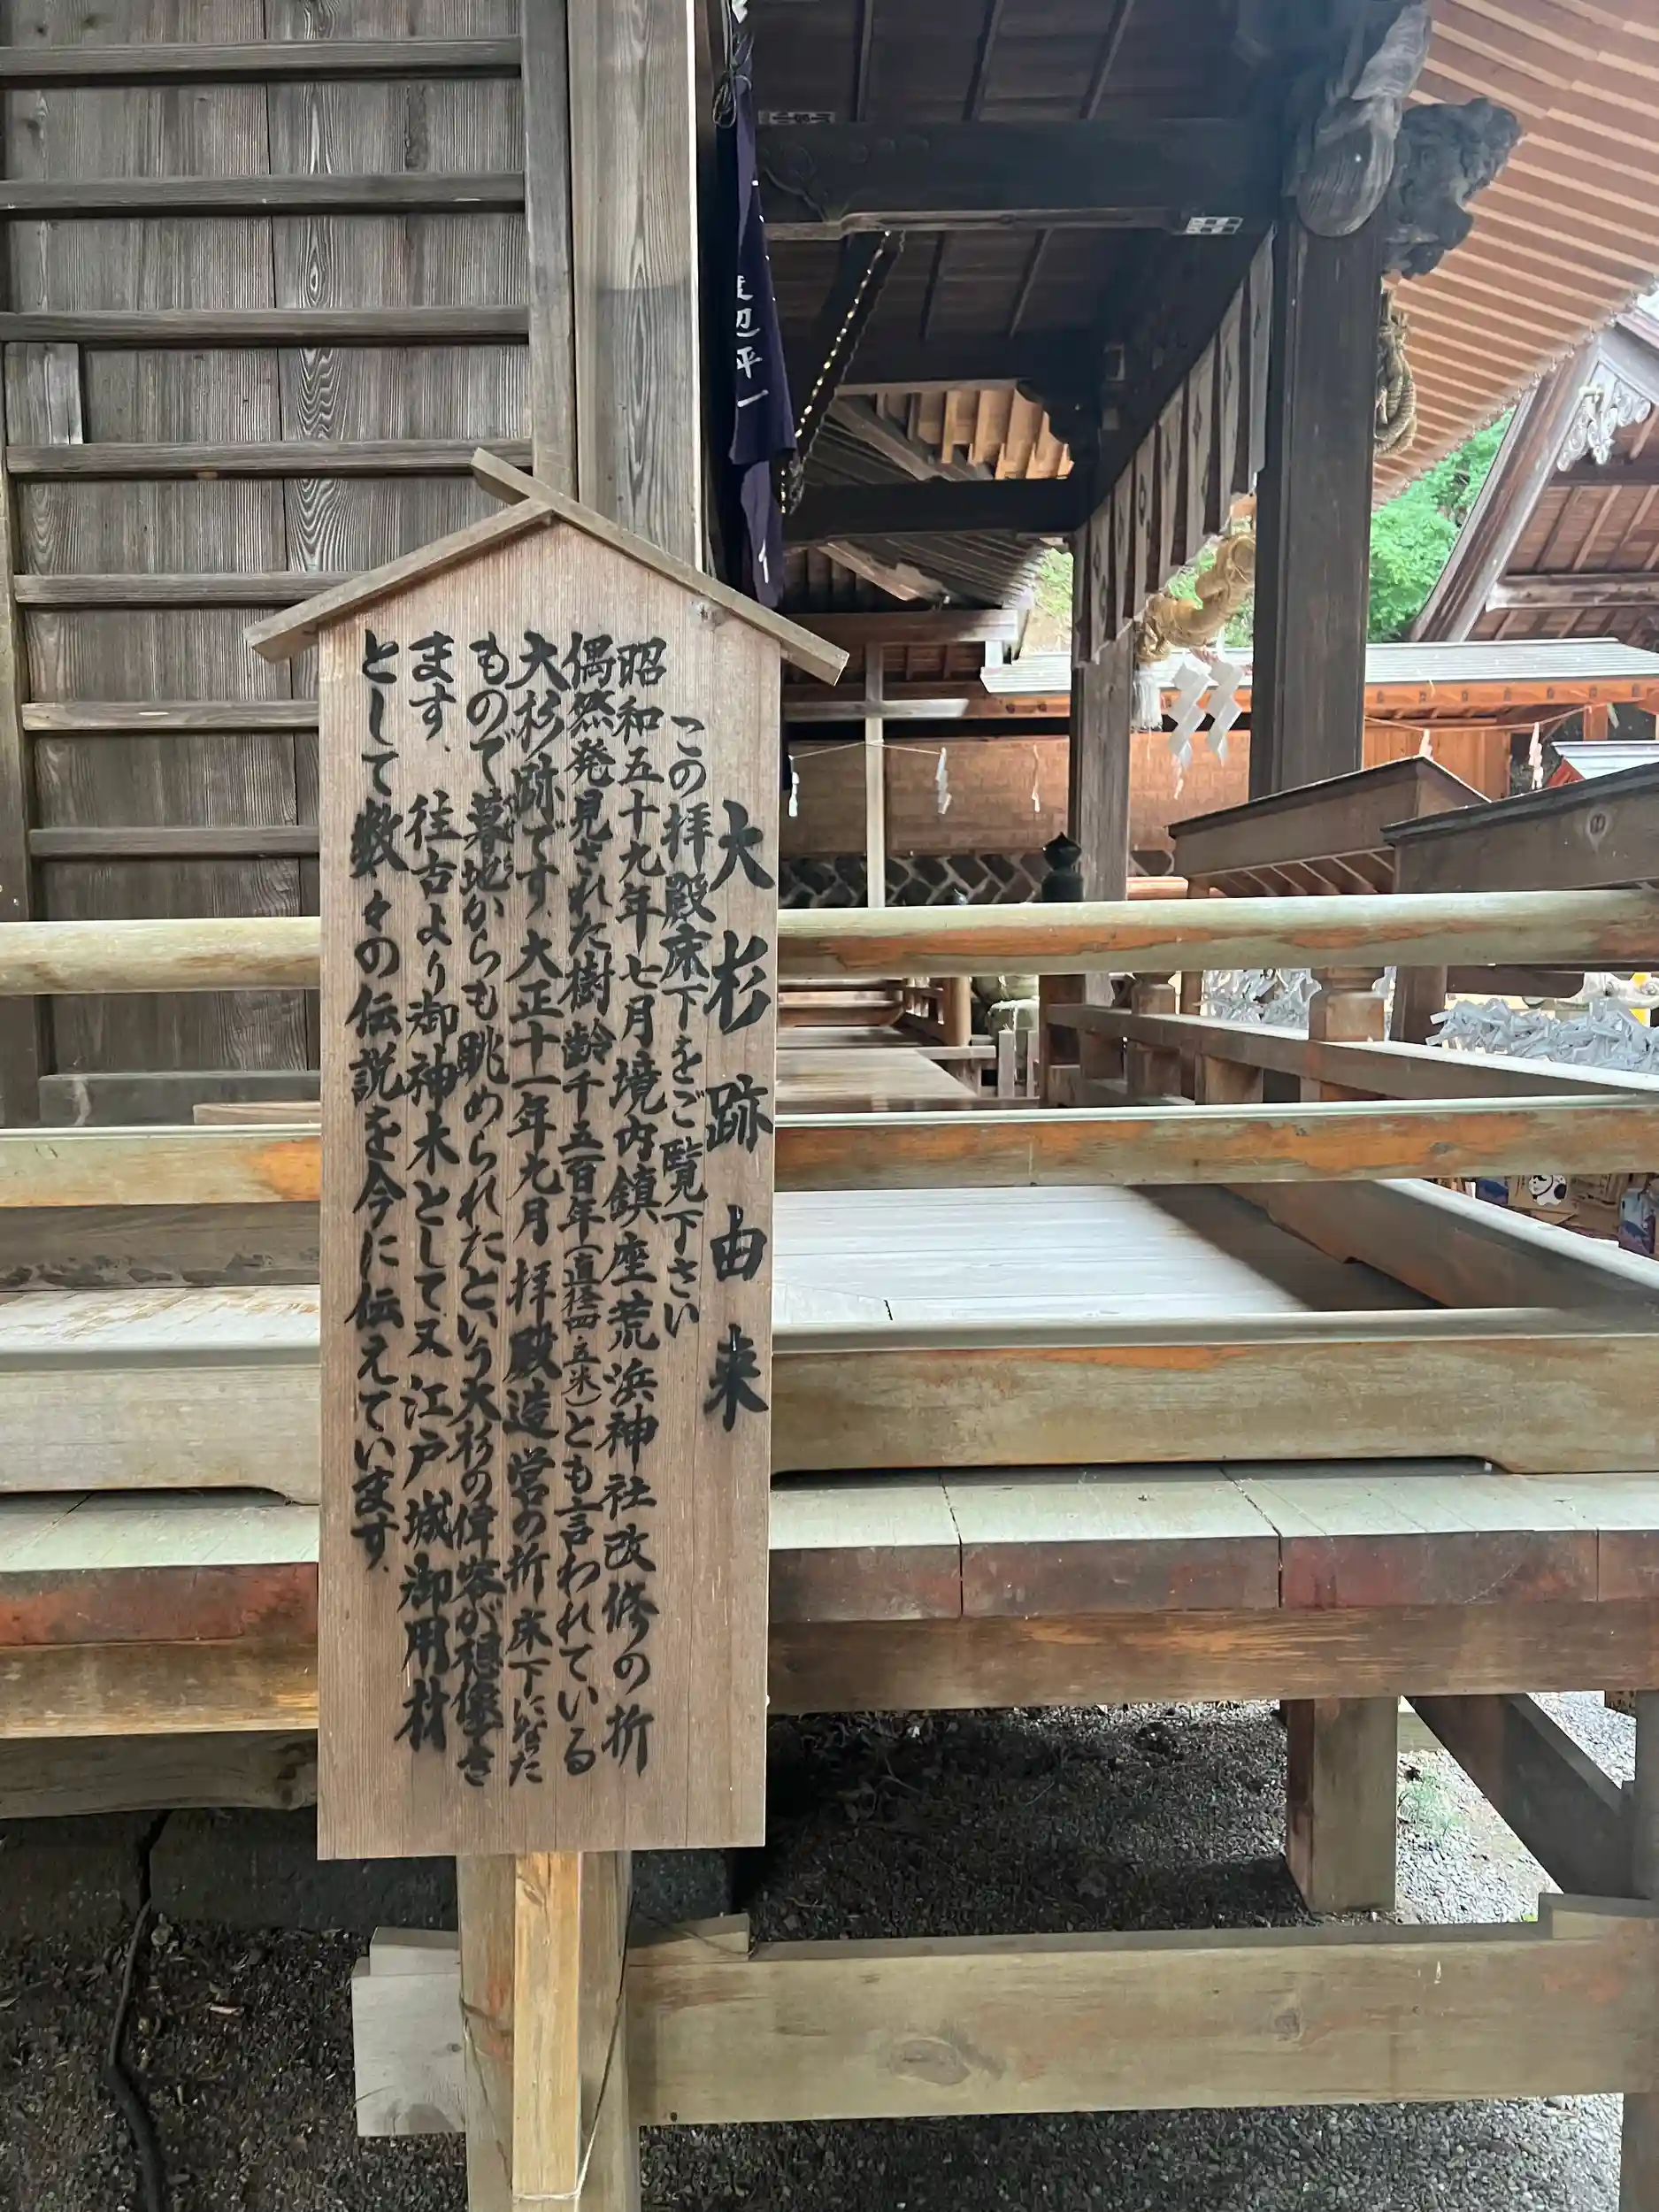 大杉跡由来
この拝殿床下をご覧下さい
昭和五十九年七月境内鎮座荒浜神社改修の折
偶然発見された樹齢千五百年(直径四、五米)とも言われている
大杉の跡です、大正十一年九月拝殿造営の折床下になった
もので暮地からも眺められたという大杉の偉容が想像でき
ます、往古より御神木として又江戸城御用材
として数々の伝説を今に伝えています、
渡辺平一